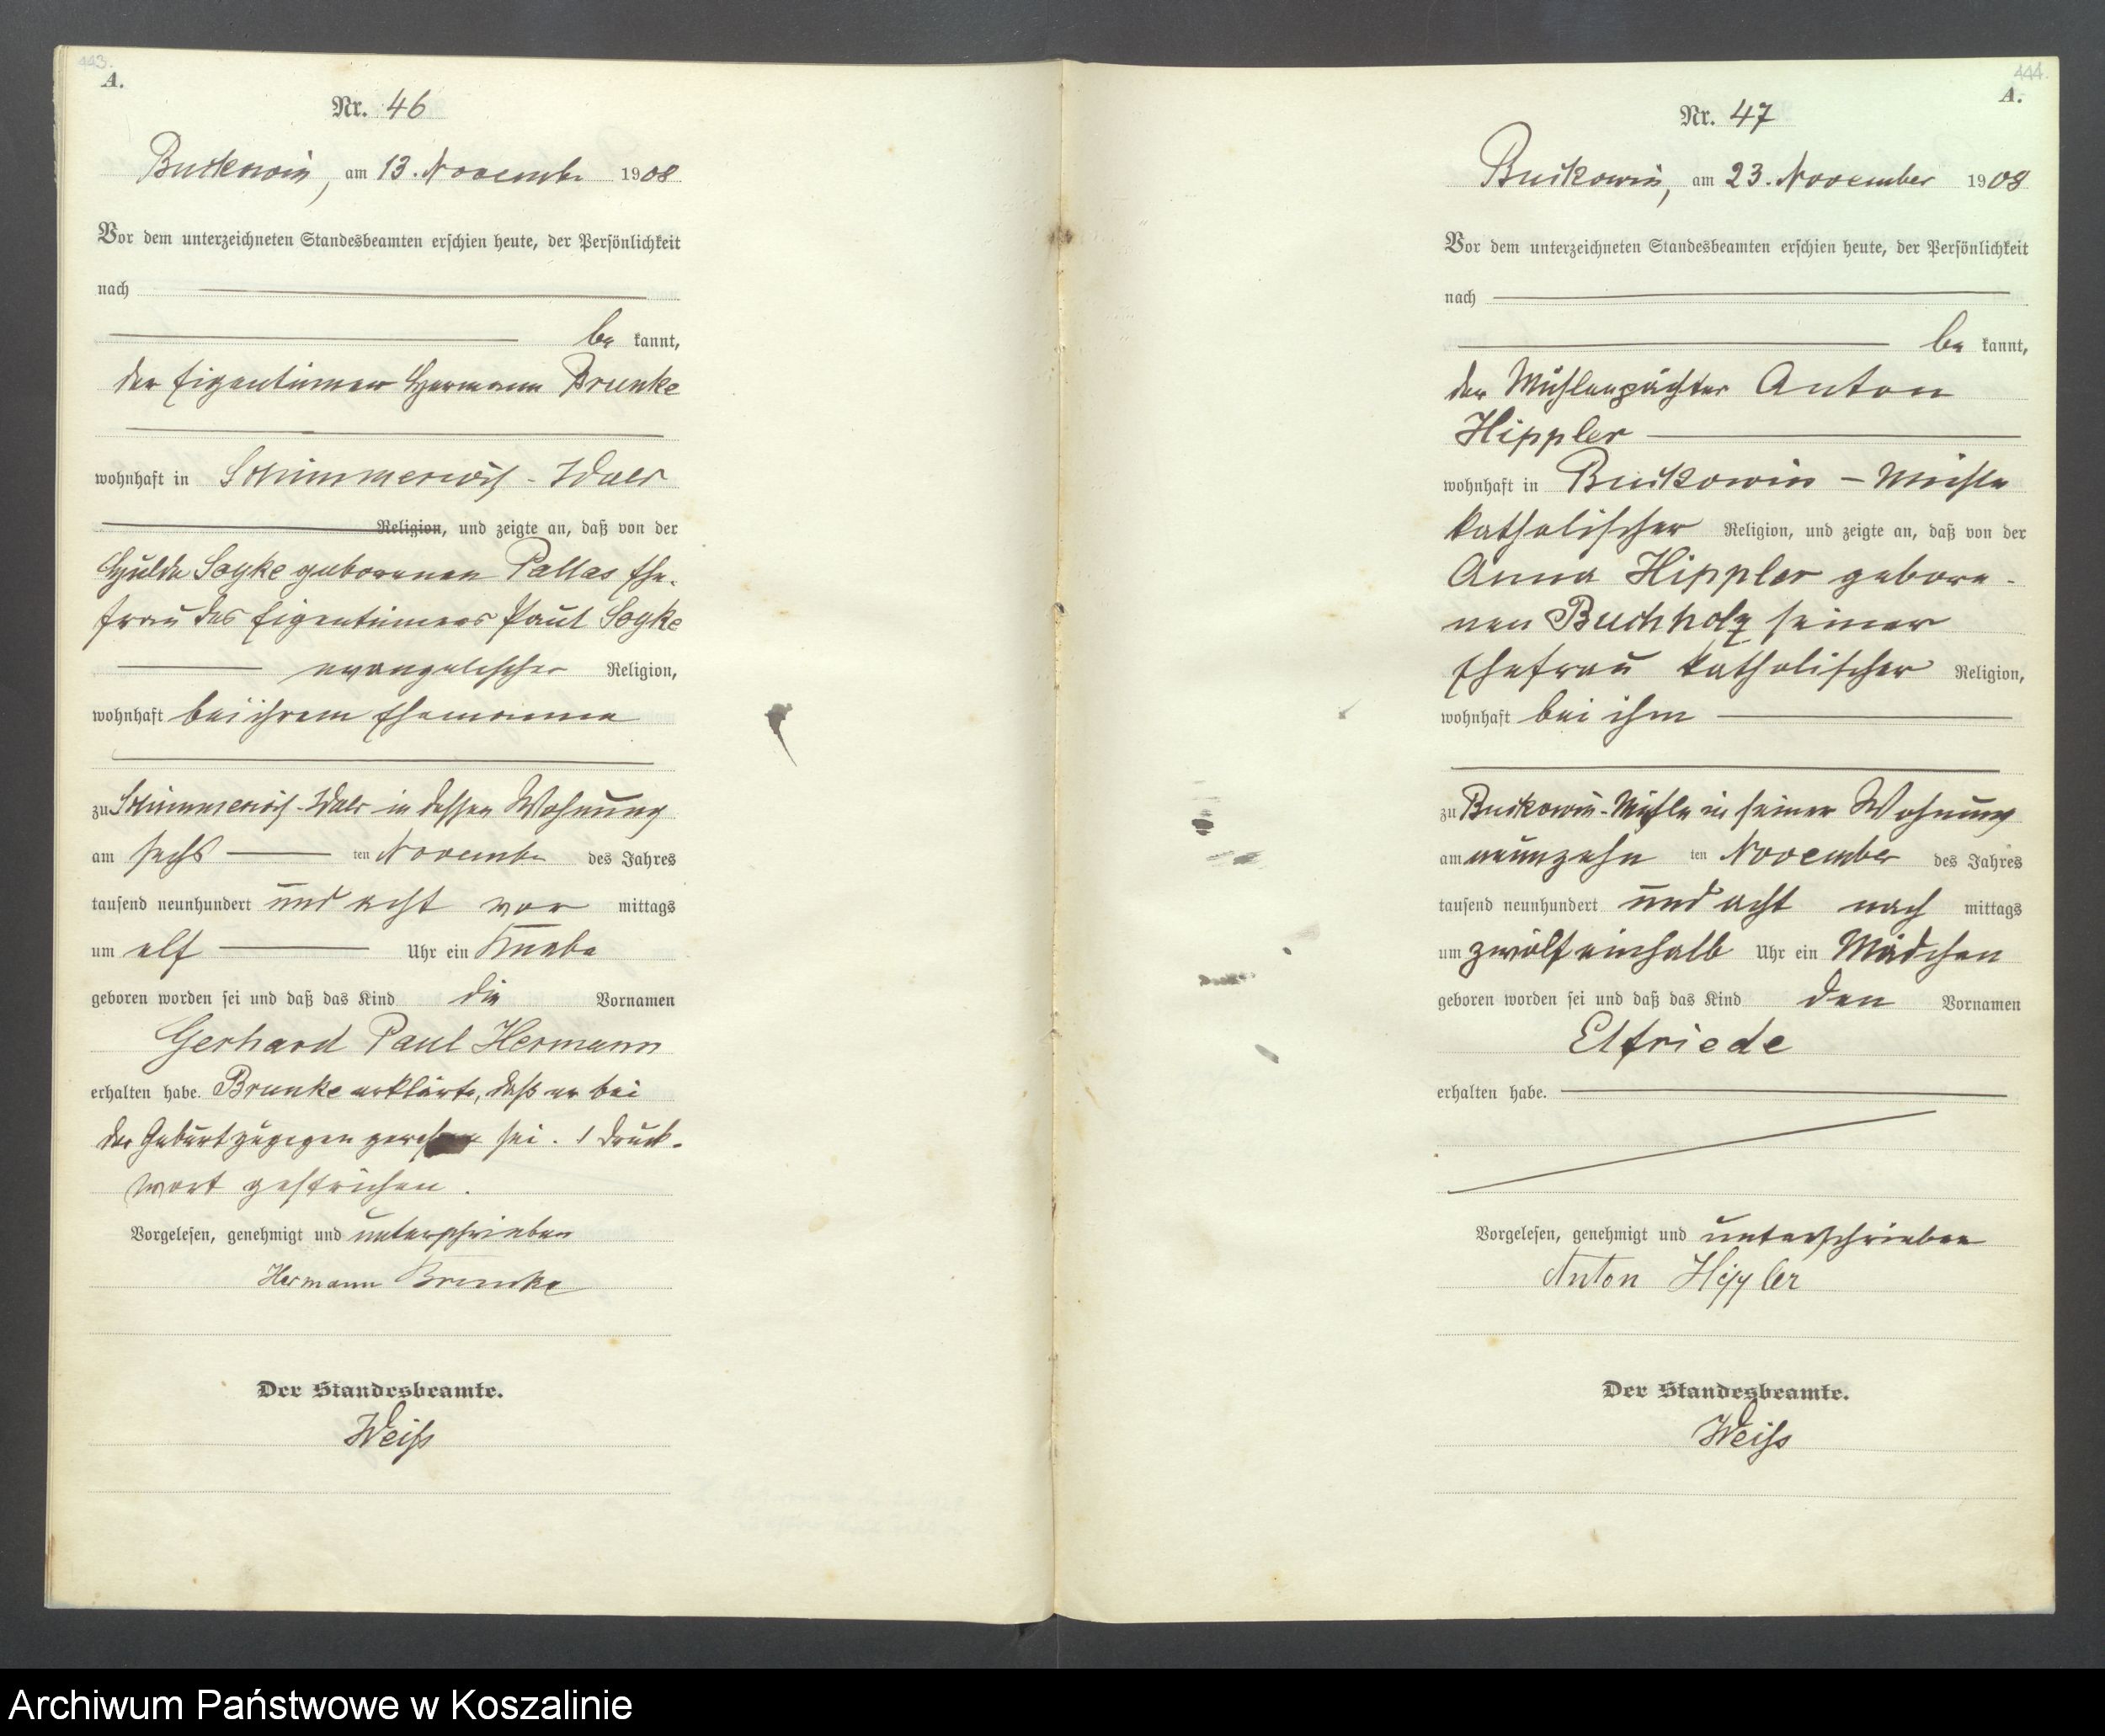 443.
A.
Nr. 46
Buckowin, am 13. Novembr 1908
Vor dem unterzeichneten Standesbeamten erschien heute, der Persönlichkeit
nach
be kannt,
der Eigentümer Hermann Brunke
wohnhaft in Schimmerwitz-
Religion, und zeigte an, daß von der
Hulda Soyke geborenen Pallas Ehe-
frau des Eigentümers Paul Soyke
evangelischer Religion,
wohnhaft bei ihrem Ehemanne
zu Schimmerwitz- in dessen Wohnung
am sechs ten Novembr des Jahres
tausend neunhundert und acht vor mittags
um elf Uhr ein Knabe
geboren worden sei und daß das Kind die Vornamen
Gerhard Paul Hermann
erhalten habe. Brunke erklärte, daß er bei
der Geburt zugegen gewesen sei. 1 Druck-
wort gestrichen.
Vorgelesen, genehmigt und unterschrieben
Hermann Brunke
Der Standesbeamte.
Weiß
444.
A.
Nr. 47
Buckowin, am 23. November 1908
Vor dem unterzeichneten Standesbeamten erschien heute, der Persönlichkeit
nach
be kannt,
der Mühlenpächter Anton
Hippler
wohnhaft in Buckowin-Mühle
katholischer Religion, und zeigte an, daß von der
Anna Hippler gebore-
nen Buchholz seiner
Ehefrau katholischer Religion,
wohnhaft bei ihm
zu Buckowin-Mühle in seiner Wohnung
am neunzehn ten November des Jahres
tausend neunhundert und acht nach mittags
um zwölf einhalb Uhr ein Mädchen
geboren worden sei und daß das Kind den Vornamen
Elfriede
erhalten habe.
Vorgelesen, genehmigt und unterschrieben
Anton Hippler
Der Standesbeamte.
Weiß
Archiwum Państwowe w Koszalinie